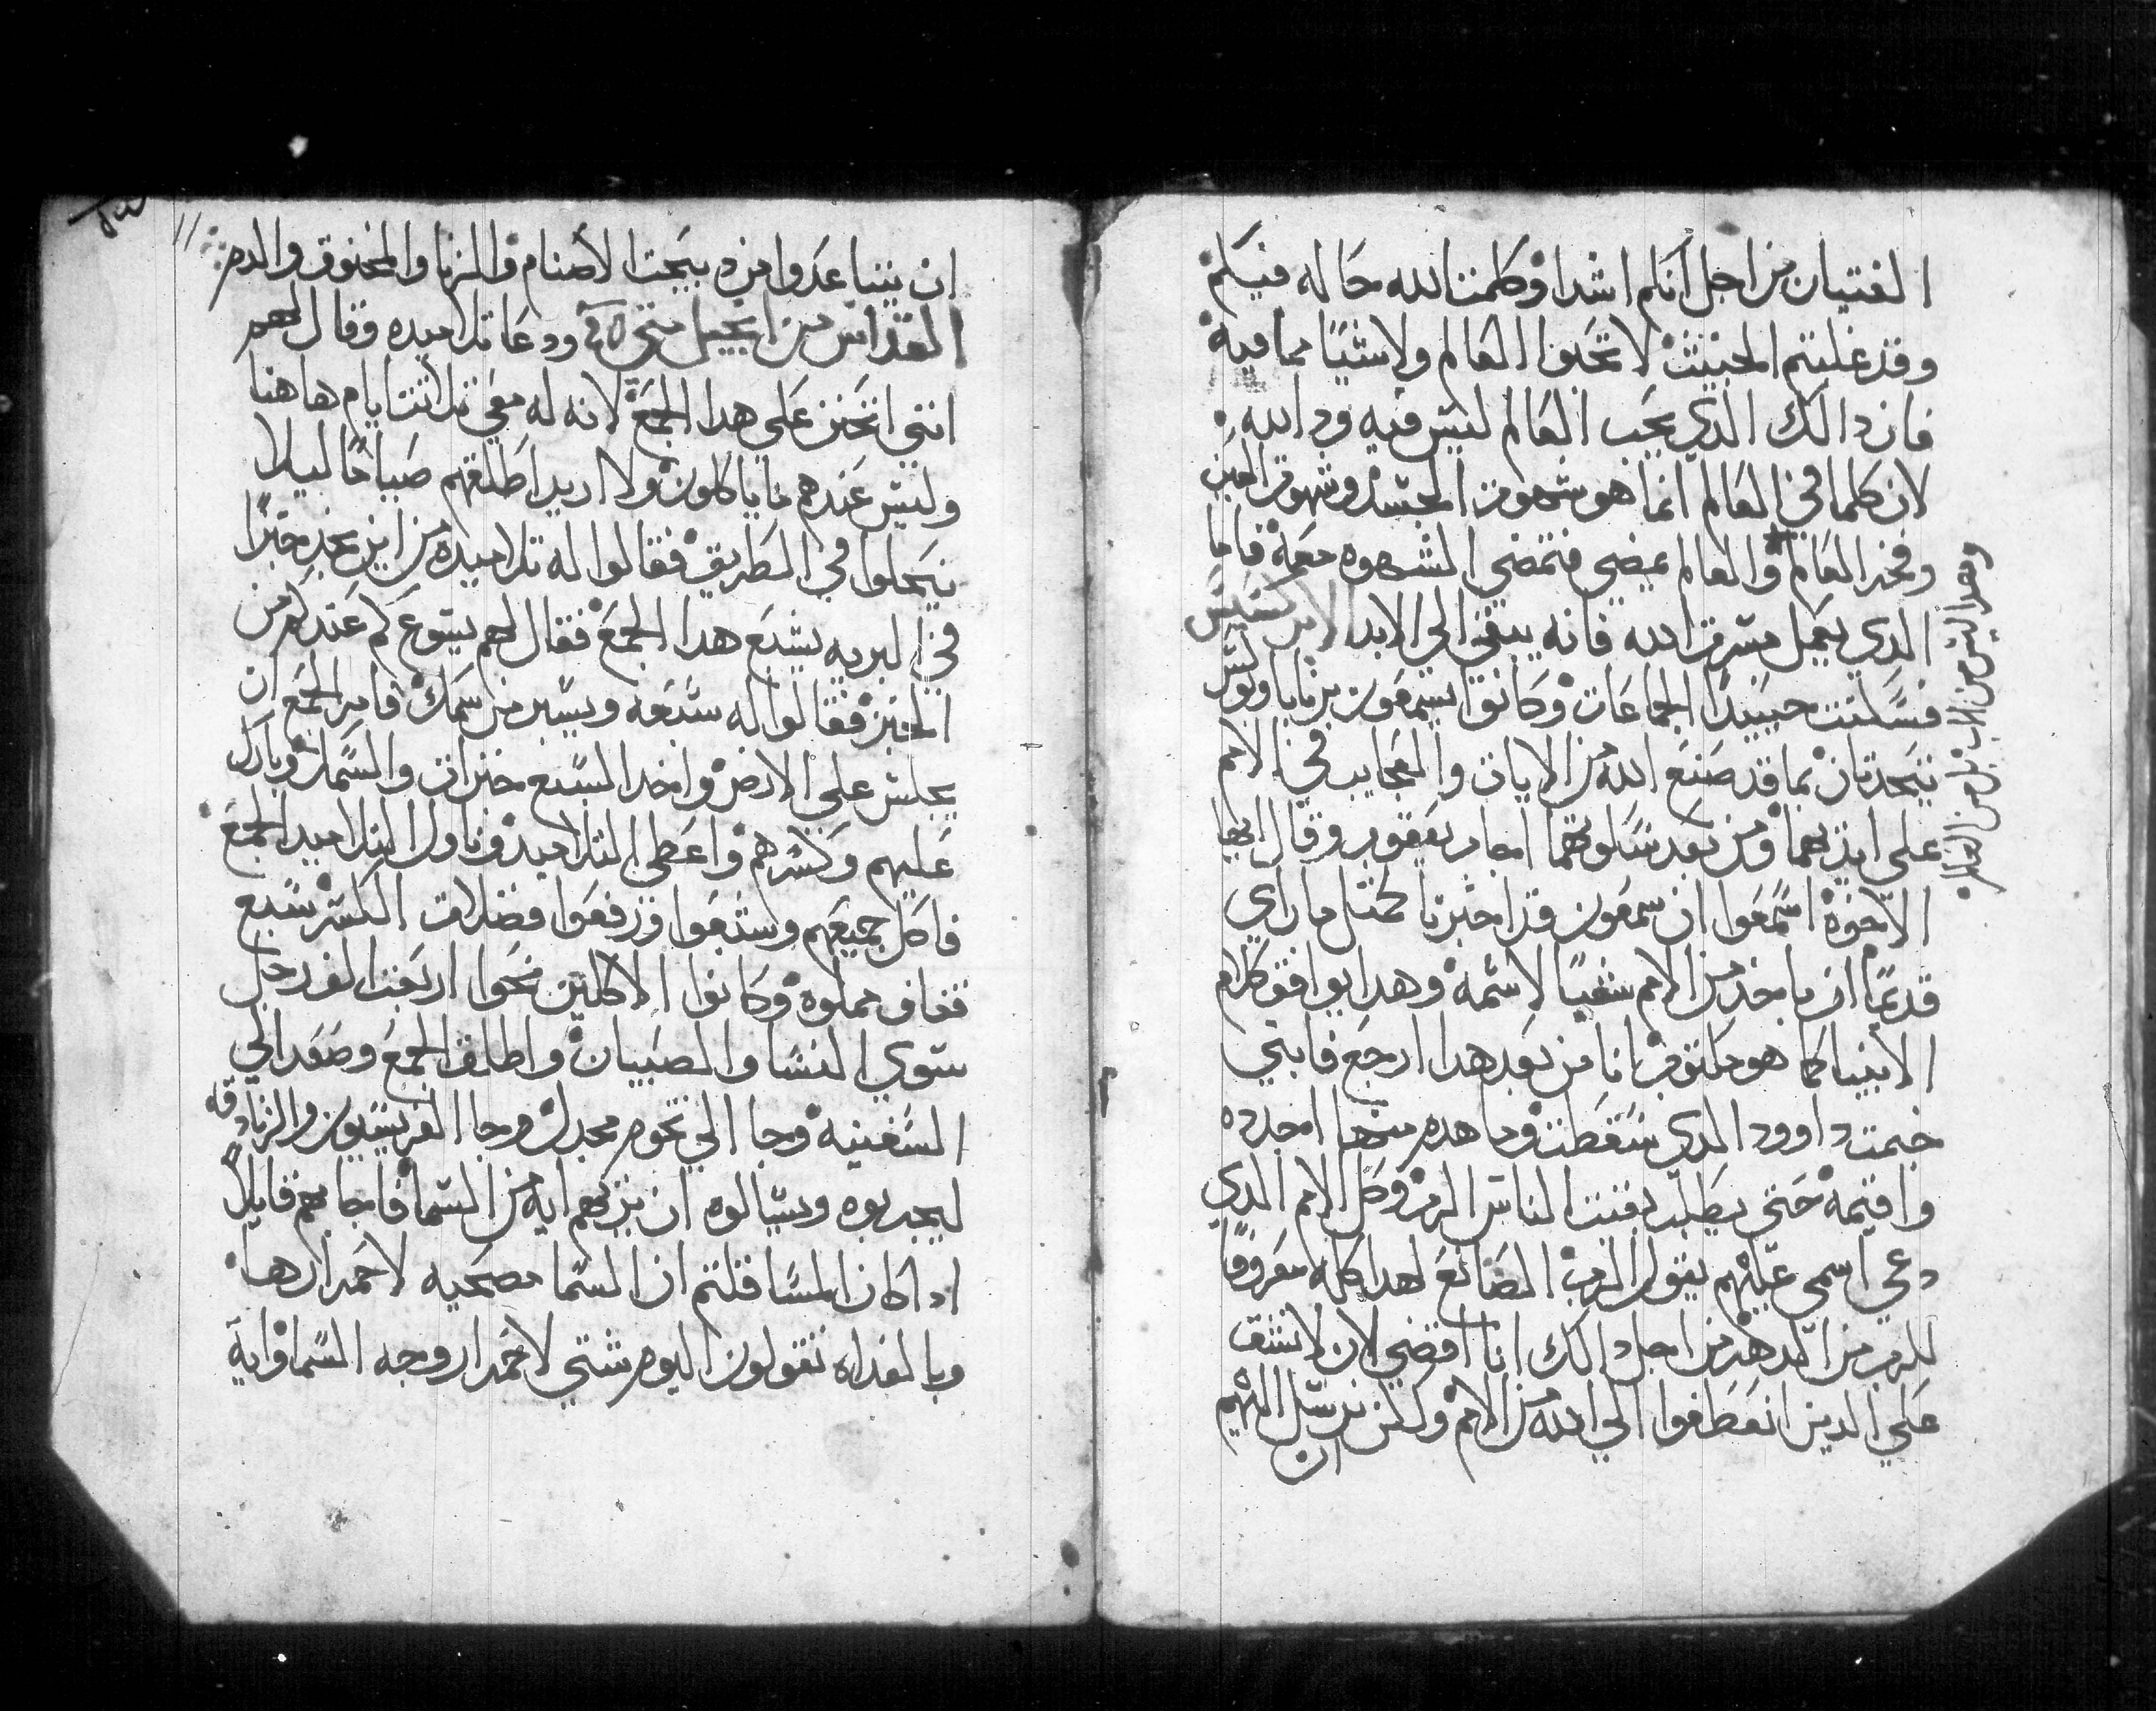 الفتيان من اجل انكم اشدا وكلمت الله حاله فيكم
وقد غلبتم الخبيث لا تحبوا العالم ولا شيا مما فيه
فان دالك الذي يحب العالم ليس فيه ود الله
لان كلما في العالم انما هو شهوت الجسد وشهوت العين
وفخر العالم والعالم يمضي فتمضي الشهوه معه فاما
الدي يعمل مسرت الله فانه يبقي الي الابد الابركسيس
فسكتت حينيدا الجماعات وكانوا يسمعون برنابا وبولس
يتحدتان بما قد صنع الله من الايات والعجايب في الامم
علي ايديهما ومن بعد سكوتهما اجاب يعقوب وقال ايها
الاخوة اسمعوا ان سمعون قد اخبرنا كمتل ما راي
قديما ان ياخد من الامم شعبا لاسمه وهدا يوافق كلام
الانبيا كما هو مكتوب انا من بعد هدا ارجع فابني
خيمت داوود الدي سقطت وما هدم منها اجدده
واقيمه حتي يطلب بقيت الناس الرب وكل الامم الدي
دعي اسمي عليهم يقول الرب الصانع لهدا كله معروفا
للرب من الدهر من اجل دالك انا اقضي لان لا نشق
علي الدين انعطفوا الي الله من الامم ولكن نرسل اليهم
ان
وهدا ليس من الاب بل من العالم
ان يتباعدوا من دبيحت الاصنام والزنا والمخنوق والدم
القداس من انجيل متي ودعا تلاميده وقال لهم
انني اتحنن علي هدا الجمع لانه له معي تلاتت ايام هاهنا
وليس عندهم ما ياكلون ولا اريد اطلقهم صياما ليلا
يتحلوا في الطريق فقالوا له تلاميده من اين نجد خبزا
في البريه يشبع هدا الجمع فقال لهم يسوع كم عندكم من
الخبز فقالوا له سبعه ويسير من سمك فامر الجمع ان
يجلس علي الارض واخد السبع خبزات والسمك وبارك
عليهم وكسرهم واعطي التلاميد وناول التلاميد الجمع
فاكل جميعهم وشبعوا ورفعوا فضلات الكسر سبع
قفاف مملوه وكانوا الاكلين نحوا اربعت الف رجل
سوي النسا والصبيان واطلق الجمع وصعد الي
السفينه وجا الي تخوم مجدل وجا الفريسيون والزنادقه
ليجربوه ويسالوه ان يريهم ايه من السما فاجابهم قايلا
ادا كان المسا قلتم ان السما مصحيه لاحمرارها
وبالغداه تقولون اليوم شتي لاحمرار وجه السماواية